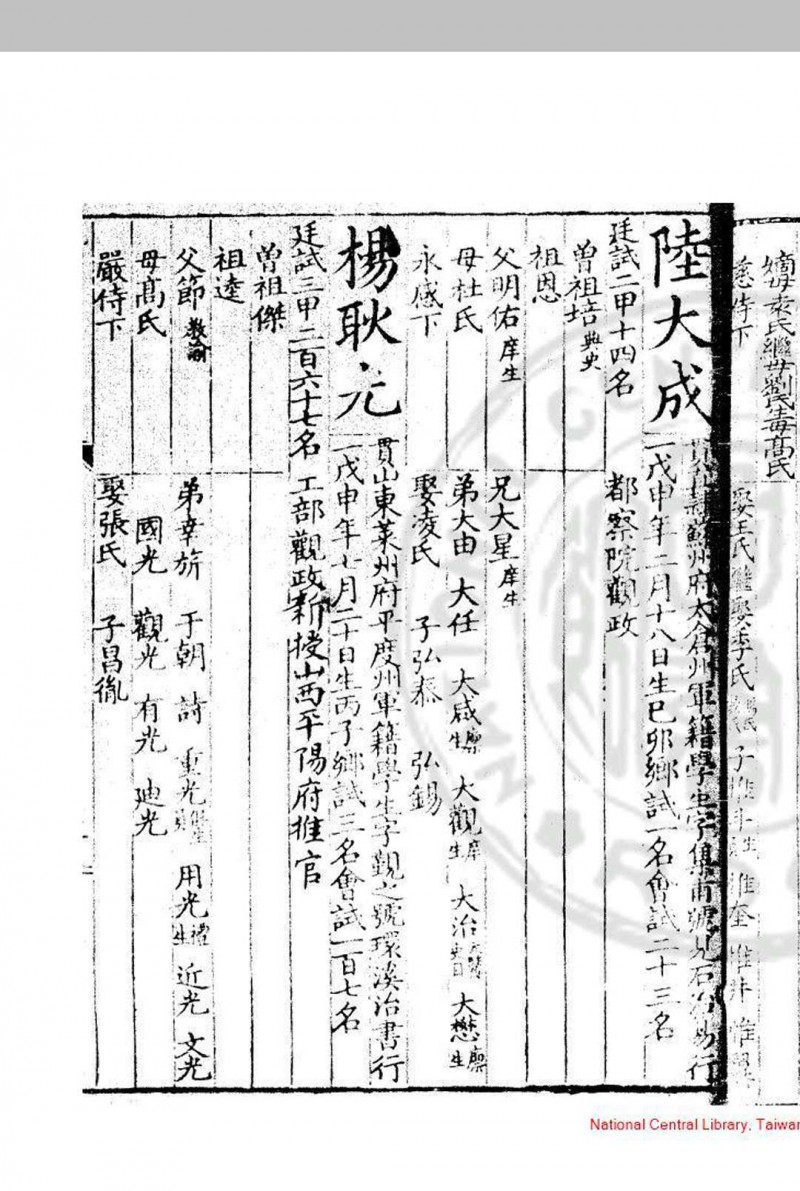 嫡母袁氏繼母劉氏生母高氏
慈侍下
娶王氏繼娶李氏
陸大成
貫直隸蘇州府太倉州軍籍學生字集甫號見石治易行
一戊申年二月十八日生己卯鄉試一名會試二十三名
廷試二甲十四名
都察院觀政
曾祖培典史
祖恩
父明佑庠生
兄大星庠生
母杜氏
弟大由 大任 大咸廩生 大觀庠生 大治 大懋廩生
永感下
娶凌氏 子弘泰 弘錫
楊耿光
貫山東萊州府平度州軍籍學生字覲之號環溪治書行
一戊申年七月二十日生丙子鄉試三名會試一百七名
廷試三甲二百六十七名
工部觀政新授山西平陽府推官
曾祖傑
祖逵
父節教諭
弟幸旂 于朝 詩 重光 用光禮生 近光 文光
母髙氏
國光 觀光 有光 廸光
嚴侍下
娶張氏 子昌胤
National Central Library, Taiwan